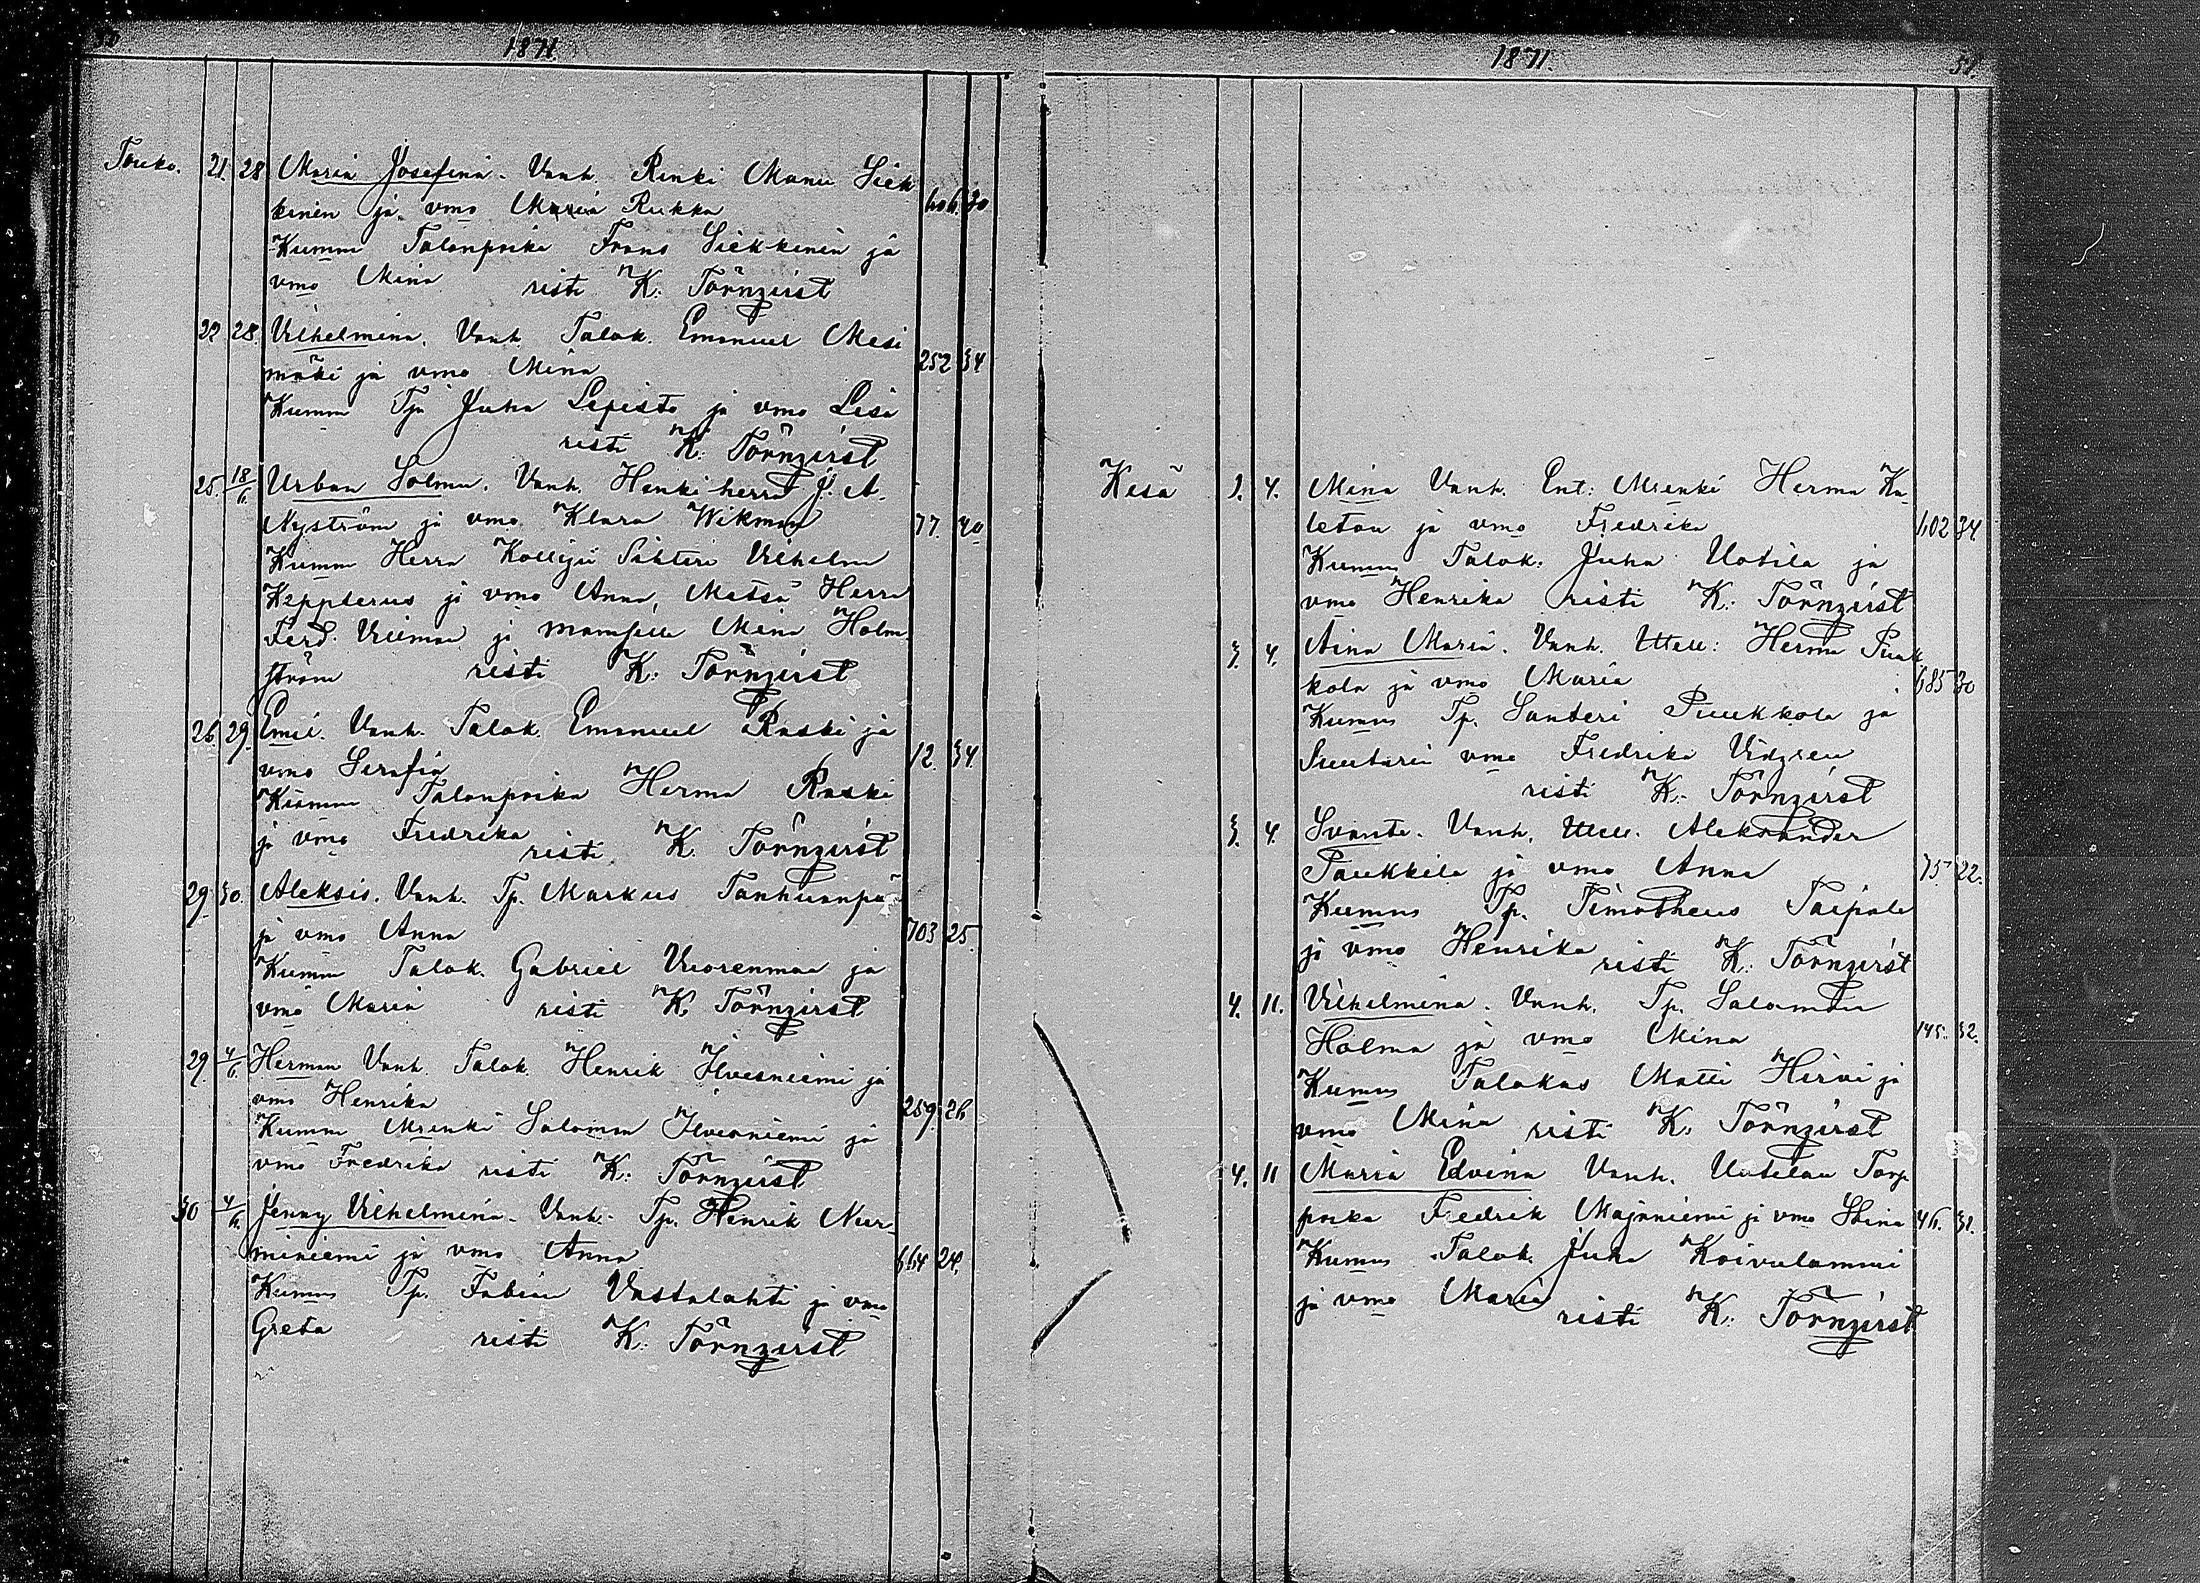 50
1871.
Touko. 21. 28 Maria Josefina. Vanh. Renki Manu Siek
kinen ja vmo Maria Rukka 606. 30
Kumm Talonpoika Frans Siekkinen ja
vmo Mina risti K. Törnqvist
22 28. Vilhelmina. Vanh. Talok. Emanuel Mesi
mäki ja vmo Mina 252 34
Kumm Tp Juha Lepistö ja vmo Lisa
risti K. Törnqvist
25. 18/6. Urban Solmu. Vanh. Henki herra J. A.
Nyström ja vmo Klara Wikman 77. 40
Kumm Herra Kollegii Sihteri Vilhelm
Kepplerus ja vmo Anna, Metsä Herra
Ferd. ja mamselli Mina Holm
ström risti K. Törnqvist
26. 29. Emil. Vanh. Talok. Emanuel Raski ja
vmo Serafia 12. 34
Kumm Talonpoika Herma Raski
ja vmo Fredrika risti K. Törnqvist
29. 30. Aleksis. Vanh. Tp. Markus Tanhuanpä
ja vmo Anna 703 25.
Kumm Talok. Gabriel Vuorenmaa ja
vmo Maria risti K. Törnqvist
29. 4/6. Herman Vanh. Talok. Henrik Ilvesniemi ja
vmo Henrika 259. 26
Kumm Mrenki Salomon Ilvesniemi ja
vmo Fredrika risti K. Törnqvist
30 4/6. Jenny Vilhelmina. Vanh. Tp. Henrik Nur-
miniemi ja vmo Anna 664 24.
Kumm Tp. Fabian Vastalahti ja vmo
Greta risti K. Törnqvist
1871.
51.
Kesä 1. 4. Mina Vanh. Ent. Mrenki Herma Ka
leton ja vmo Fredrika 602 34
Kumm Talok. Juha Uotila ja
vmo Henrika risti K. Törnqvist
3. 4. Aina Maria. Vanh. Itsell: Herma Puuk
kola ja vmo Maria 685 30
Kumm Tp. Santeri Puukkola ja
Suutarin vmo Fredrika Vidgren
risti K. Törnqvist
3. 4. Svante. Vanh. Itsell. Aleksander
Paukkila ja vmo Anna 75. 22.
Kumm Tp. Timotheus Taipale
ja vmo Henrika risti K. Törnqvist
4. 11. Vilhelmina. Vanh. Tp. Salomon
Holma ja vmo Mina 145. 32.
Kumm Talokas Matti Hirvi ja
vmo Mina risti K. Törnqvist
4. 11 Maria Edvina Vanh. Uutelan Torp
poika Fredrik Majaniemi ja vmo Stina 46. 31.
Kumm Talok. Juha Koivulammi
ja vmo Maria risti K. Törnqvist